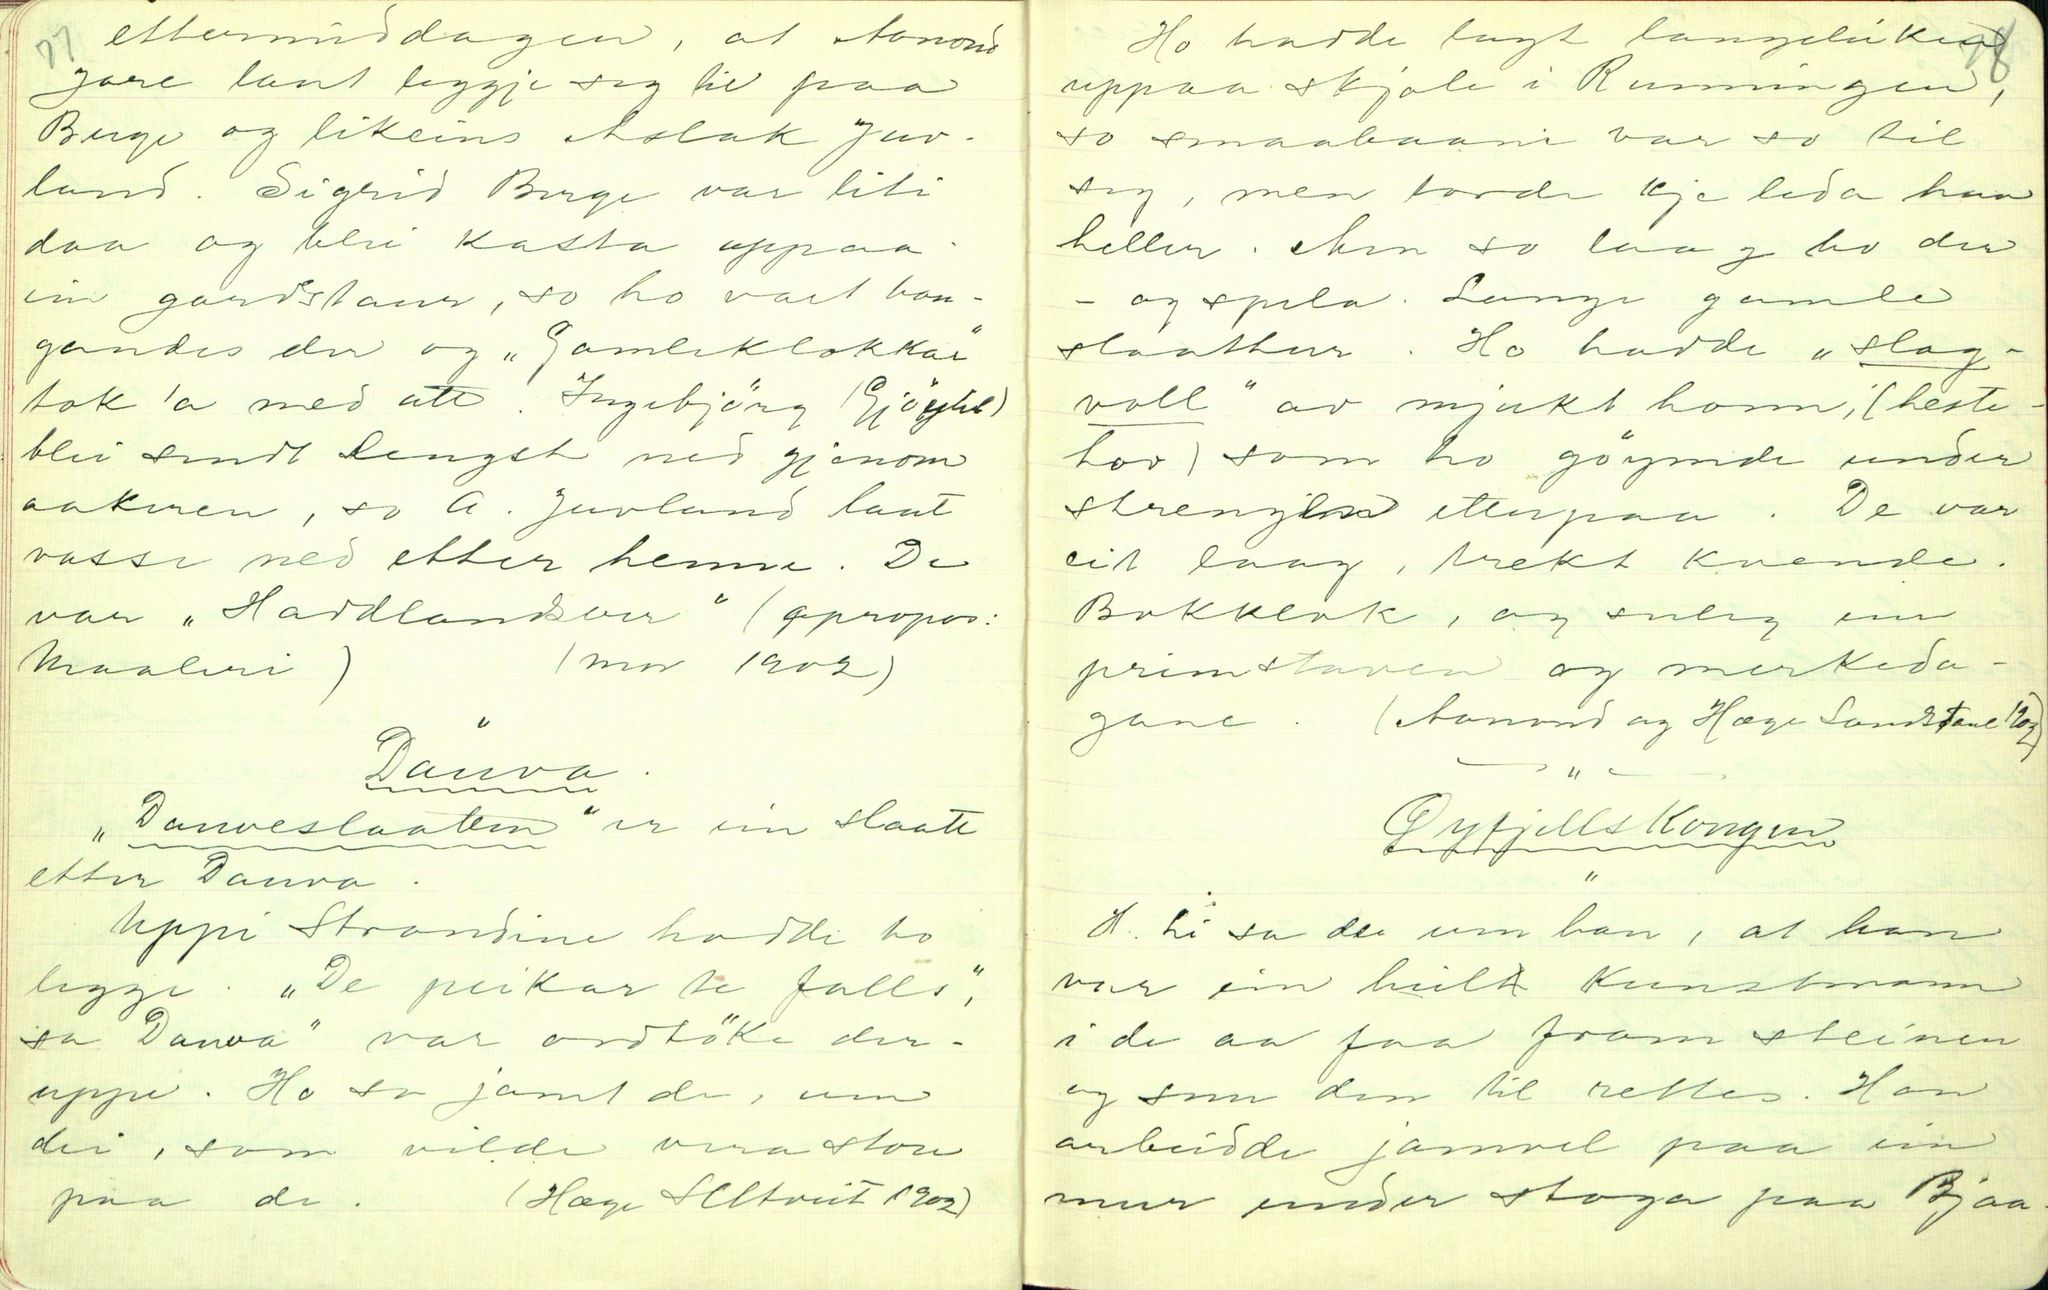 77
ettermiddagen, at Aanond
Jore laut leggje seg til paa
Berge og likeins Aslak Juv-
land. Sigrid Berge var liti
daa og blei kasta uppaa
ein gardstaur, so ho vart han-
gandes der og „Gamleklokka"
tok 'a med att. Ingebjörg (Gjöytil)
blei sendt lengst ned gjenom
aakeren, so A. Juvland laut
vasse ned etter henne. De
var „Haddlandsver" (apropos:
Maaleri) (mor 1902)
"
Dauva.
„Dauveslaatten" er ein slaatt
etter Dauva.
Uppi Strondine hadde ho
legje. „De peikar te falls",
sa Dauva" var ordtöke der-
uppe. Ho sa jamt de, um
dei, som vilde vera store
paa de. (Hæge Seltveit 1902)
78
Ho hadde lagt langeleiken
uppaa skjole i Runningen,
so smaabaani var so til
seg, men torde kje leda han
heller. Men so laag ho der
- og spela. Lange gamle
slaattar. Ho hadde „slag-
voll" av mjukt honn, (heste-
hov) som ho göymde under
strengjen etterpaa. De var
eit laag, trekt kvende.
Bokklok, og serleg um
primstaven og merkeda-
gane. (Aanond og Hæge Sandstaul 1902)
"
Øyfjellskongen
"
H. Li sa de um han, at han
var ein heilt kunstmann
i de aa faa fram steinen
og snu den til rettes. Han
arbeidde jamvel paa ein
mur under stoga paa Bjaa-